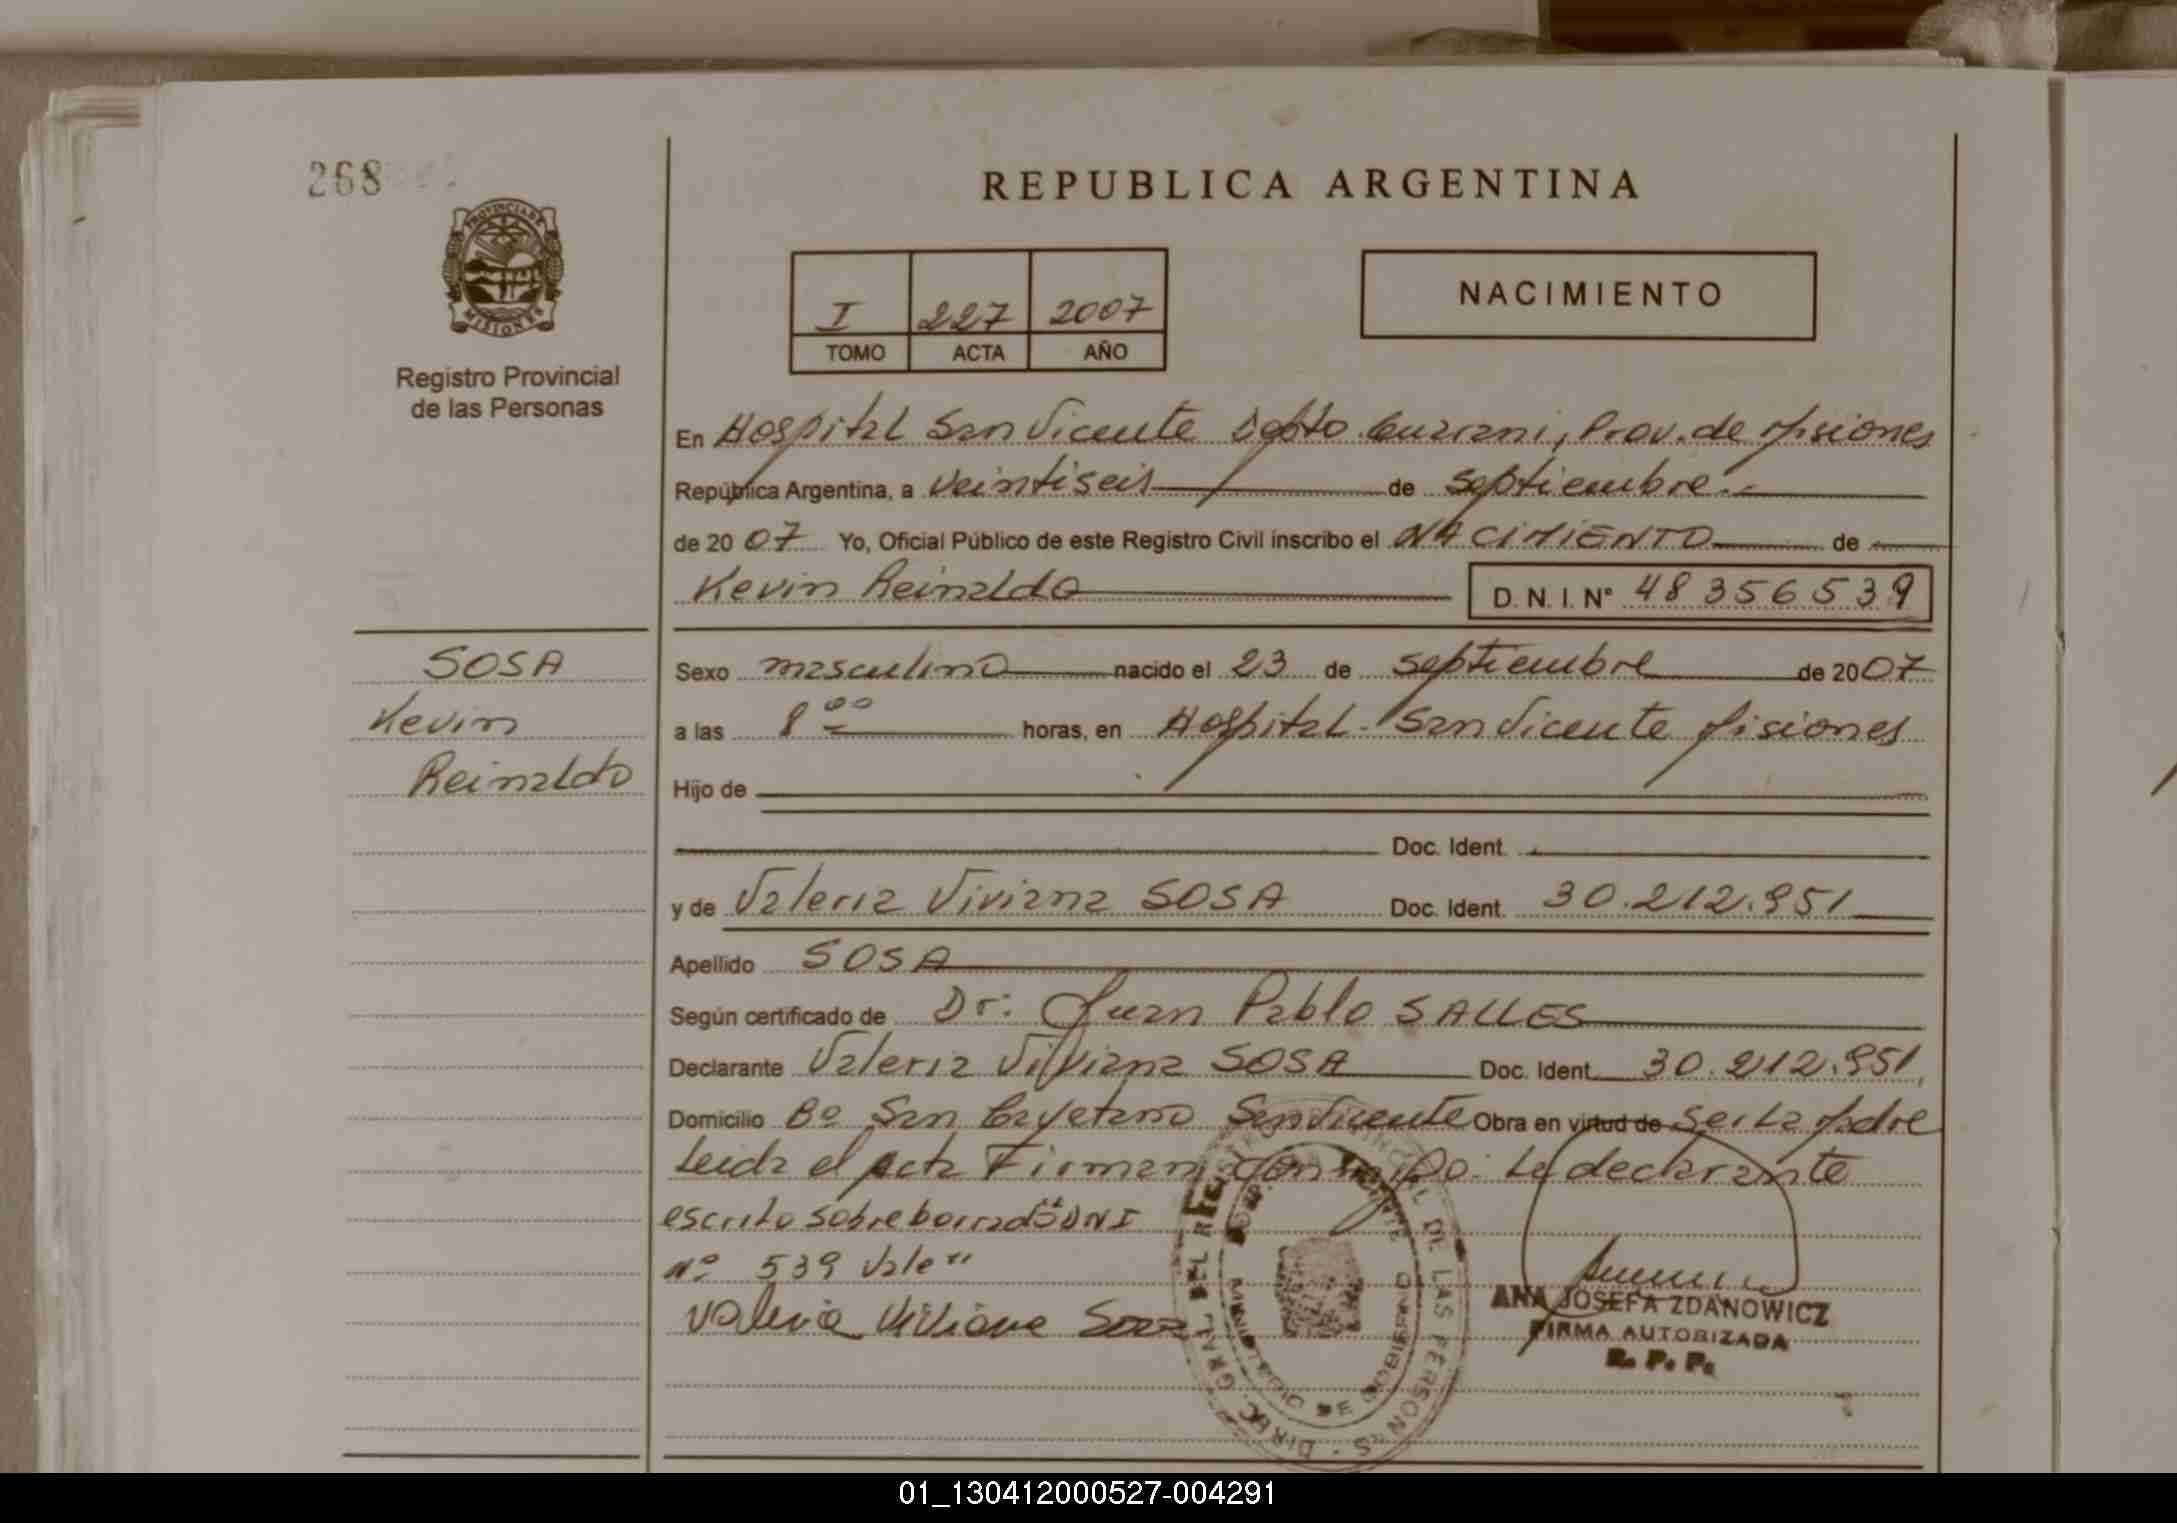 268
REPUBLICA ARGENTINA
PROVINCIA DE
MISIONES
Registro Provincial
de las Personas
I 227 2007
TOMO ACTA AÑO
NACIMIENTO
En Hospital San Vicente Depto. Guarani, Prov. de Misiones
República Argentina, a veintiseis de septiembre.-
de 20 07 Yo, Oficial Público de este Registro Civil inscribo el NACIMIENTO de
Kevin Reinaldo D. N. I. N° 48356539
SOSA
Kevin
Reinaldo
Sexo masculino nacido el 23 de septiembre de 2007
a las 8 00 horas, en Hospital San Vicente Misiones
Hijo de
Doc. Ident.
y de Valeria Viviana SOSA Doc. Ident. 30.212.951
Apellido SOSA
Según certificado de Dr: Juan Pablo SALLES
Declarante Valeria Viviana SOSA Doc. Ident. 30.212.951
Domicilio Bº San Cayetano San Vicente Obra en virtud de ser la Madre
Leida el acta Firman conmigo: La declarante
escrito sobre borrado DNI
nº 539 Vale"
Valeria Viviana Sosa
DIREC. GRAL. DEL REGISTRO PROVINCIAL DE LAS PERSONAS
MINISTERIO DE GOBIERNO
ANA JOSEFA ZDANOWICZ
FIRMA AUTORIZADA
R. P. P.
01_130412000527-004291